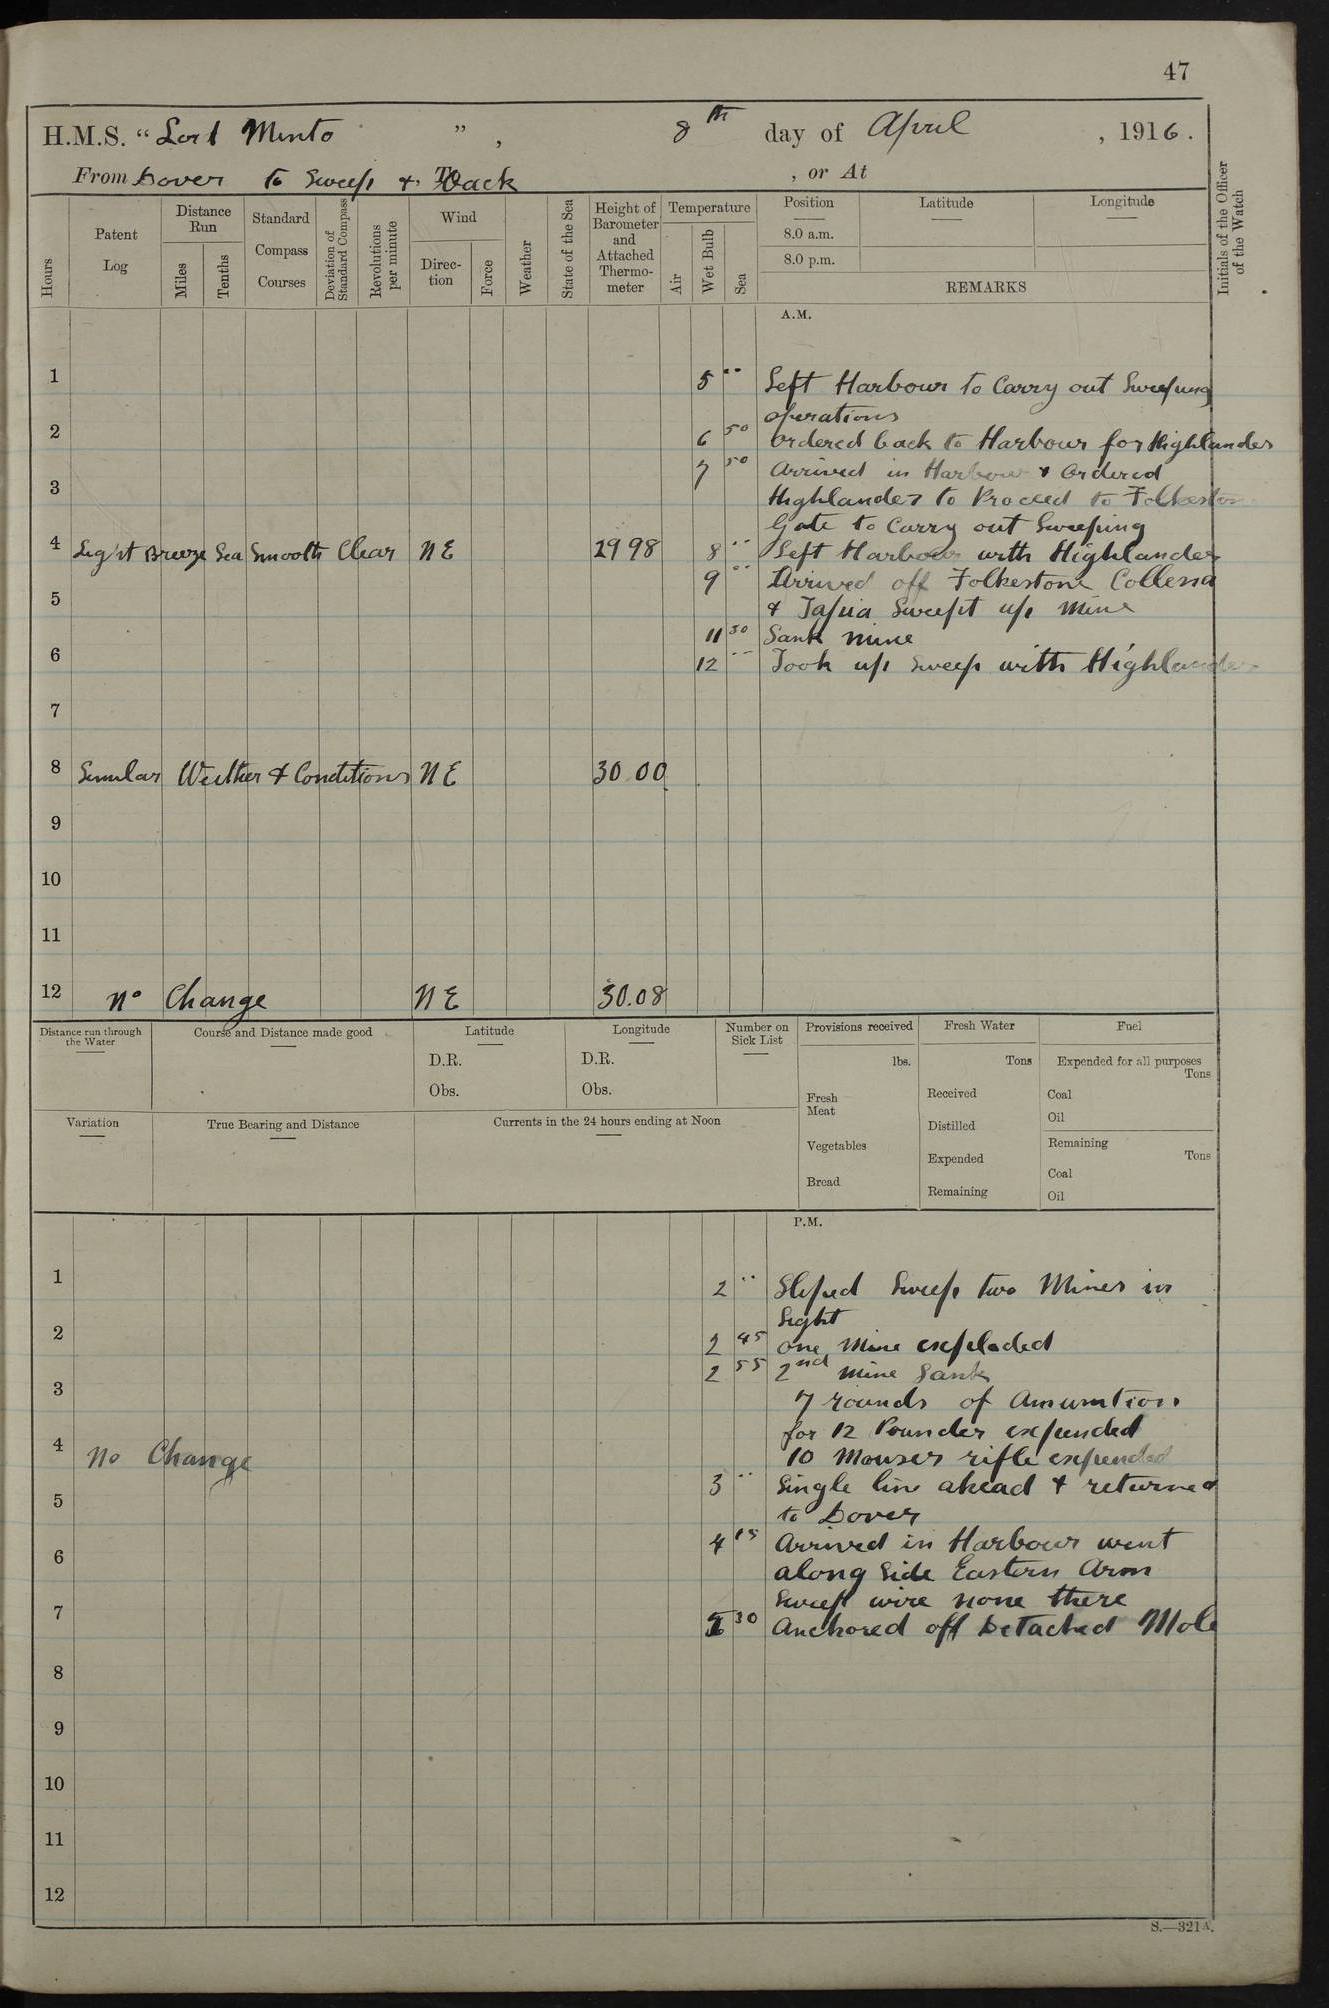 47
H.M.S. "Lord Minto", 8th day of April, 1916.
From Dover to Sweep & Back, or At
Hours
Patent Log
Distance Run
Miles
Tenths
Standard Compass Courses
Deviation of Standard Compass
Revolutions per minute
Wind
Direc-tion
Force
Weather
State of the Sea
Height of Barometer and Attached Thermo-meter
Temperature
Air
Wet Bulb
Sea
Position
8.0 a.m.
8.0 p.m.
Latitude
Longitude
REMARKS
Initials of the Officer of the Watch
A.M.
1 5 .. Left Harbour to Carry out Sweeping
operations
2 6 50 ordered back to Harbour for Highlander
7 50 Arrived in Harbour & Ordered
3 Highlander to Proceed to Folkestone
Gate to Carry out Sweeping
4 Light Breeze Sea Smooth Clear NE 29 98 8 .. Left Harbour with Highlander
9 .. Arrived off Folkestone Collena
5 & Tapia Sweept up Mine
11 30 Sank mine
6 12 .. Took up Sweep with Highlander
7
8 Simular Wether & Conditions NE 30 00
9
10
11
12 No Change NE 30.08
Distance run through the Water
Course and Distance made good
Latitude
D.R.
Obs.
Longitude
D.R.
Obs.
Number on Sick List
Provisions received
lbs.
Fresh Meat
Vegetables
Bread
Fresh Water
Tons
Received
Distilled
Expended
Remaining
Fuel
Expended for all purposes
Tons
Coal
Oil
Remaining
Tons
Coal
Oil
Variation
True Bearing and Distance
Currents in the 24 hours ending at Noon
P.M.
1 2 .. Sliped Sweep two Mines in
Sight
2 2 45 one Mine exploded
2 55 2nd mine Sank
3 7 rounds of Amunition
for 12 Pounder expended
4 No Change 10 Mouser rifle expended
3 .. Single line ahead & returned
5 to Dover
4 15 Arrived in Harbour went
6 along side Eastern Arm
Sweep wire none there
7 30 Anchored off Detached Mole
8
9
10
11
12
S.—321A.